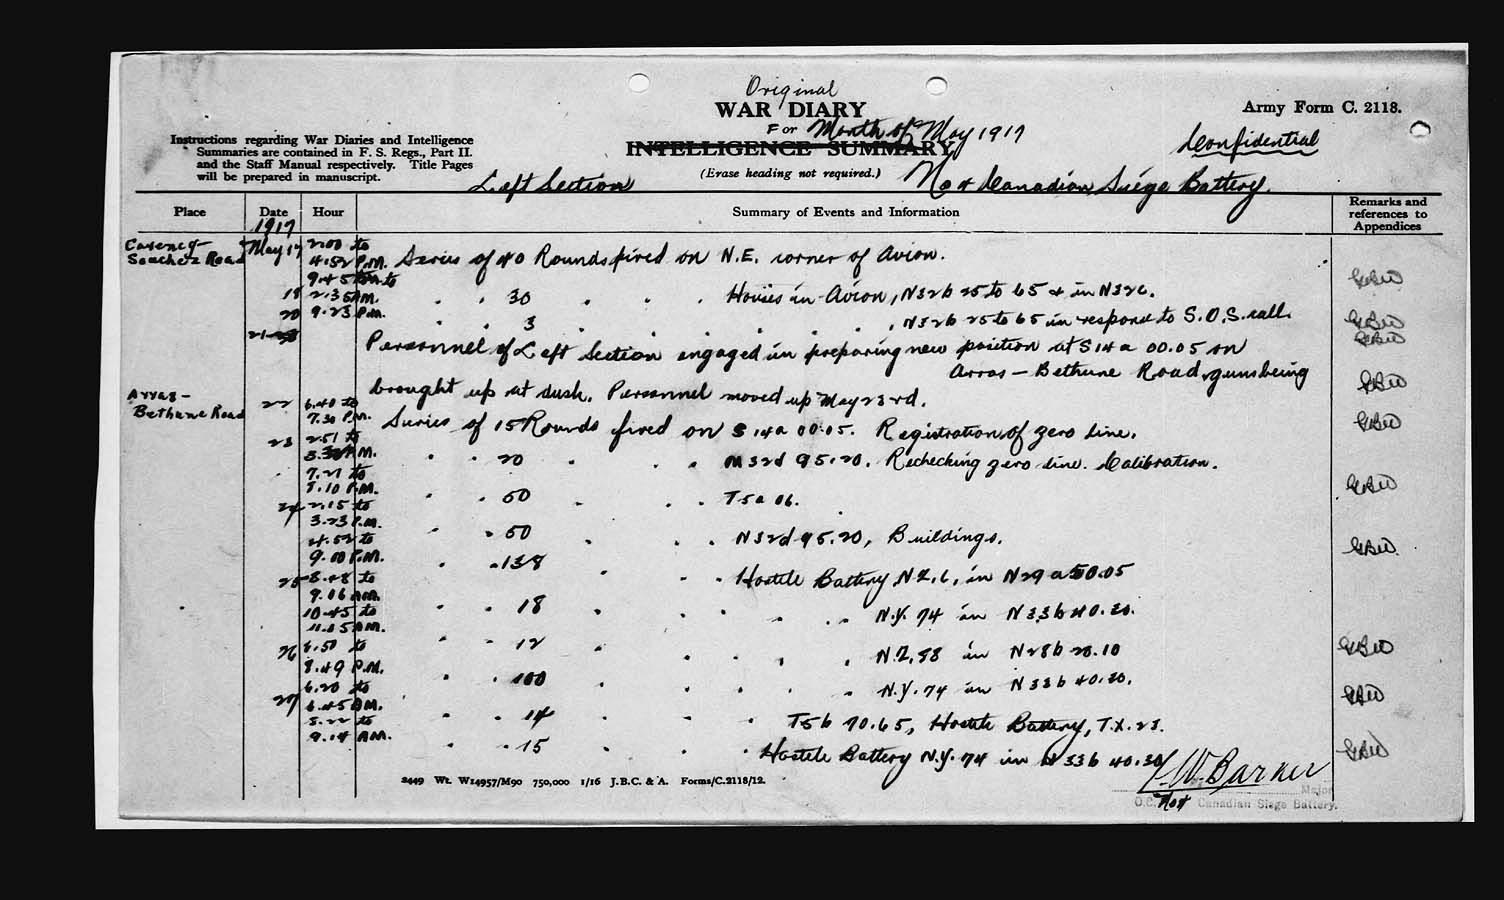 Original
WAR DIARY
Army Form C. 2118.
For Month of May 1917
Confidential
INTELLIGENCE SUMMARY
Instructions regarding War Diaries and Intelligence
Summaries are contained in F. S. Regs., Part II.
and the Staff Manual respectively. Title Pages
will be prepared in manuscript.
(Erase heading not required.)
Left Section
No 4 Canadian Siege Battery.
Place Date Hour Summary of Events and Information Remarks and references to Appendices
1917
Carency- May 17 2.00 to
Souchez Road 4.52 P.M. Series of 40 Rounds fired on N.E. corner of Avion.
9.45 to
19 2.35 A.M. " " 30 " " " Houses in Avion, N32b 25 to 65 & in N32c.
20 9.23 P.M. " " 3 " " " " , N32b 25 to 65 in respond to S.O.S. call.
21 Personnel of Left Section engaged in preparing new position at S14a 00.05 on
Arras - Bethune Road, guns being
brought up at dusk. Personnel moved up May 23rd.
Arras- 22 6.40 to
Bethune Road 7.30 P.M. Series of 15 Rounds fired on S14a 00.05. Registration of zero line.
23 2.51 to
P.M. " " 20 " " " M32d 95.20. Rechecking zero line. Calibration.
7.21 to
P.M. " " 50 " " " T5a 06.
24 2.15 to
3.23 P.M. " " 50 " " " N32d 95.20, Buildings.
4.52 to
9.00 P.M. " " 138 " " " Hostile Battery N.Z.6, in N29a 50.05
25 8.48 to
9.16 A.M. " " 18 " " " N.Y. 74 in N33b 40.30.
10.45 to
A.M. " " 12 " " " N.Z.98 in N28b 20.10
26 to
P.M. " " 100 " " " N.Y. 74 in N33b 40.30.
6.20 to
27 6.45 A.M. " " 14 " " " T5b 70.65, Hostile Battery, T.X.23.
to
9.14 A.M. " " 15 " " " Hostile Battery N.Y. 74 in N33b 40.30
2449 Wt. W14957/M90 750,000 1/16 J.B.C. & A. Forms/C.2118/12.
W. Barker
Major
O.C. No 4 Canadian Siege Battery.